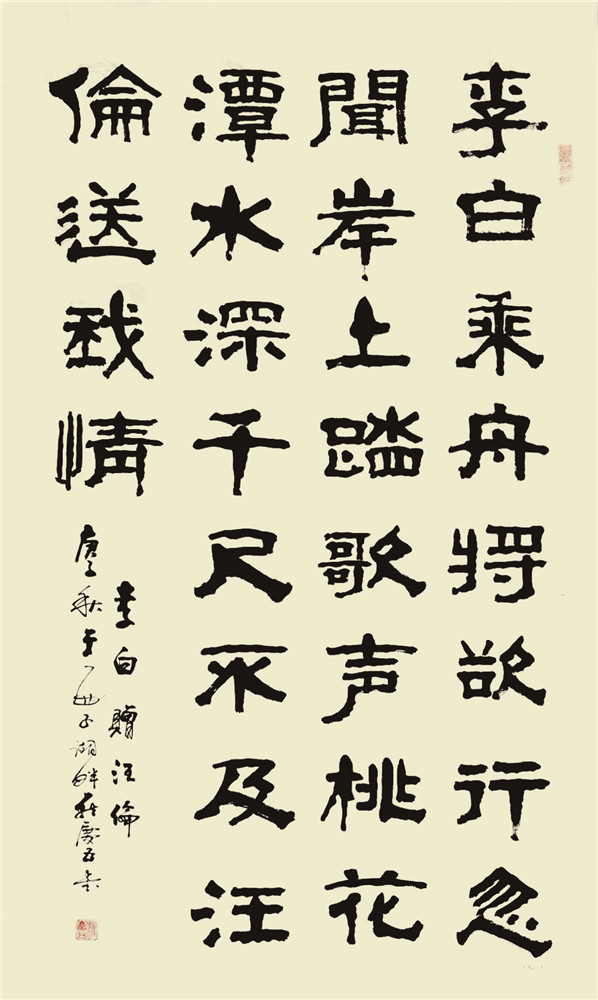 李白乘舟将欲行忽
聞岸上踏歌声桃花
潭水深千尺不及汪
倫送我情
李白贈汪倫
秋西子湖畔